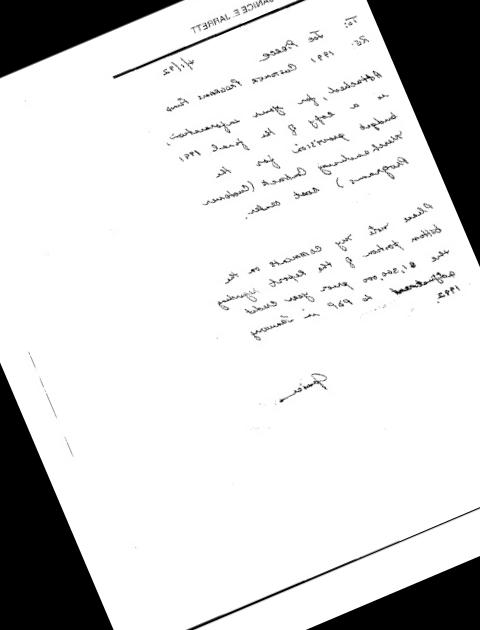 JANICE E. JARRETT
4/1/92
To: Joe Pierce
Re: 1991 Customer Programs Fund
Attached, for your information,
is a copy of the final 1991
budget provision for the
Merchandising Contract (Customer
Programs) cost center.
Please note my comments on the
bottom portion of the report regarding
the $1,500,000 prior year credit
adjustment to P&L in January
1992.
Janice